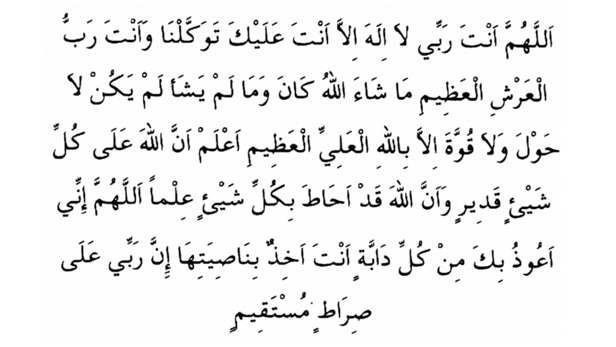 اَللَّهُمَّ اَنْتَ رَبِّي لاَ اِلَهَ اِلاَّ اَنْتَ عَلَيْكَ تَوَكَّلْنَا وَاَنْتَ رَبُّ
الْعَرْشِ الْعَظِيمِ مَا شَاءَ اللهُ كَانَ وَمَا لَمْ يَشَأ لَمْ يَكُنْ لاَ
حَوْلَ وَلاَ قُوَّةَ اِلاَّ بِاللهِ الْعَلِيِّ الْعَظِيمِ اَعْلَمْ اَنَّ اللهَ عَلَى كُلِّ
شَيْئٍ قَدِيرٍ وَاَنَّ اللهَ قَدْ اَحَاطَ بِكُلِّ شَيْئٍ عِلْماً اَللَّهُمَّ اِنِّي
اَعُوذُ بِكَ مِنْ كُلِّ دَابَّةٍ اَنْتَ اَخِذٌ بِنَاصِيَتِهَا اِنَّ رَبِّي عَلَى
صِرَاطٍ مُسْتَقِيمٍ